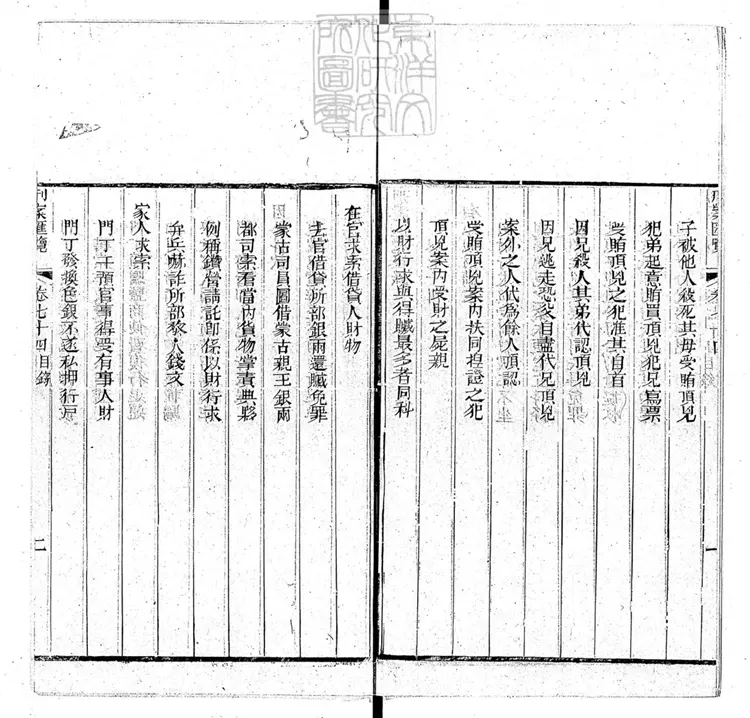 東洋文
化研究
所圖書
刑案匯覽
子被他人殺死其母受賄頂兇
犯弟起意賄買頂兇犯兄爲票
受賄頂兇之犯准其自首
因兄殺人其弟代認頂兇
因兄逃走恐父自盡代兄頂兇
案外之人代爲餘人頂認
受賄頂兇案內扶同揑證之犯
頂兇案內受財之屍親
以財行求與得贓最多者同科
一
在官求索借貸人財物
主官借貸所部銀兩還贓免罪
蒙古司員圖借蒙古親王銀兩
都司索看當內貨物掌責典夥
例稱鑽營請託卽係以財行求
弁兵嚇詐所部黎人錢文
家人求索
門丁干預官事得受有事人財
門丁發換色銀不遂私押行戶
刑案匯覽
卷七十四目錄
二